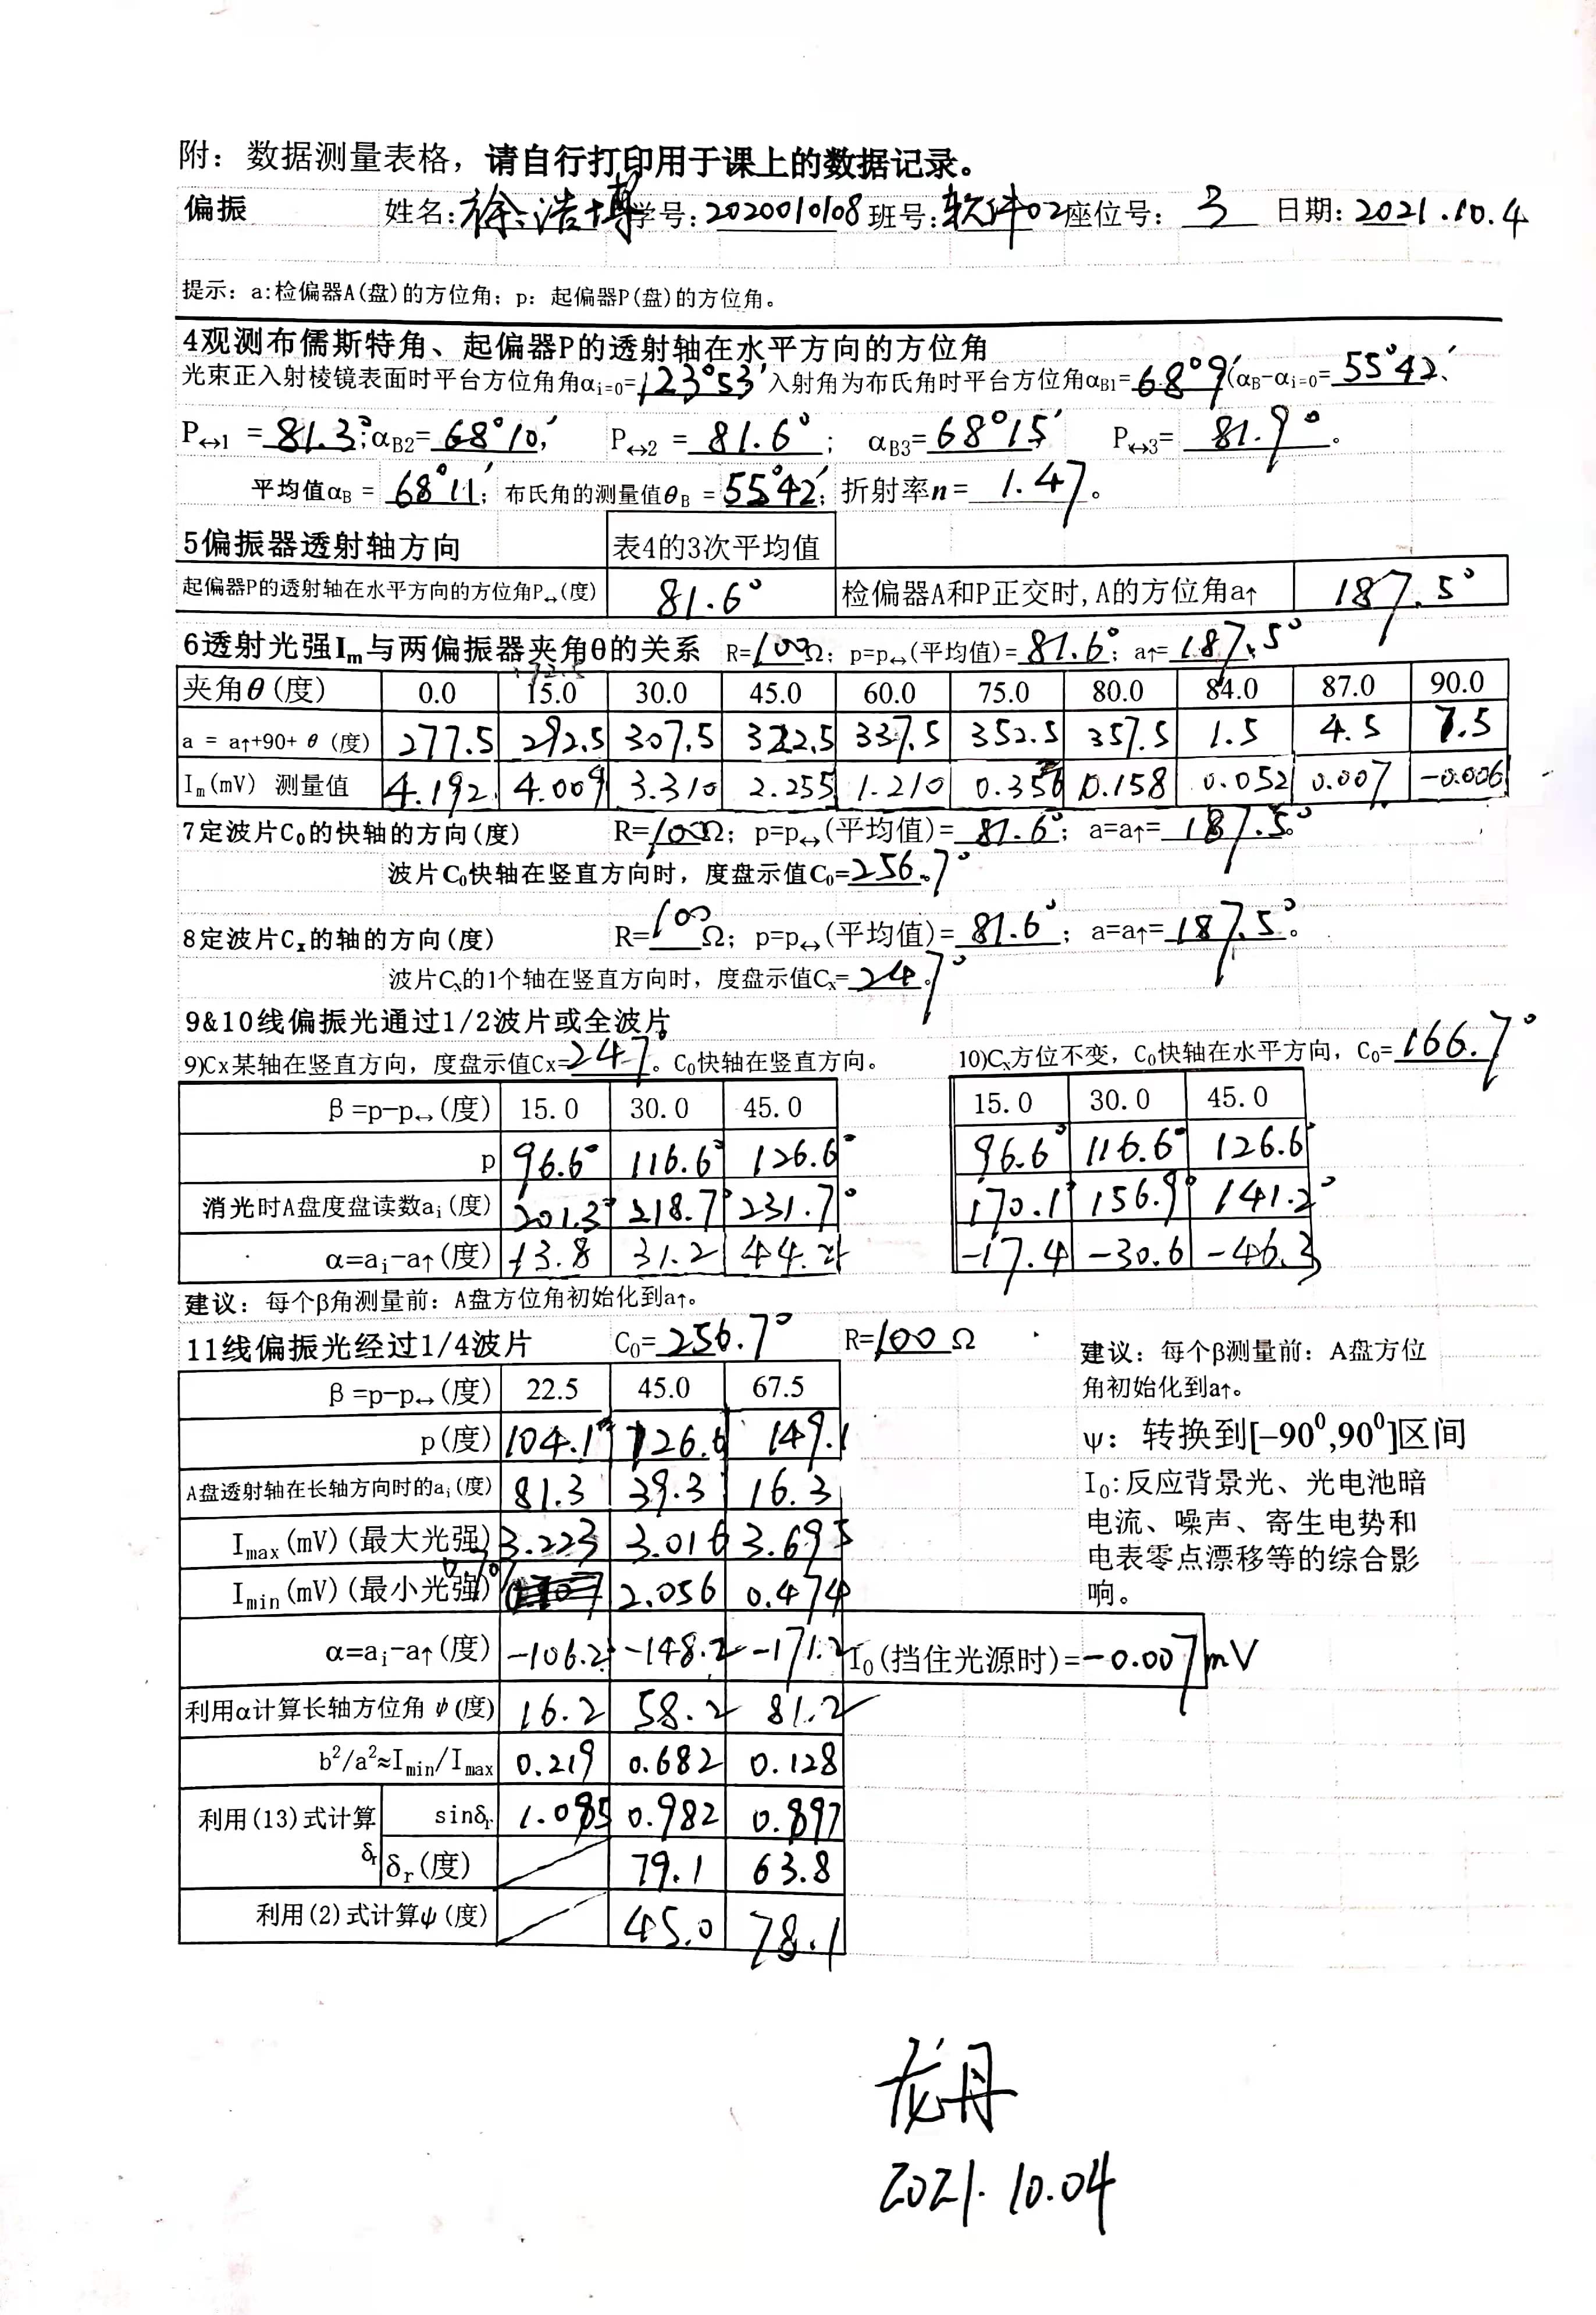 附：数据测量表格，请自行打印用于课上的数据记录。
偏振 姓名：徐浩博 学号：2020010108 班号：软件02 座位号：3 日期：2021.10.4
提示：a:检偏器A(盘)的方位角；p: 起偏器P(盘)的方位角。
4观测布儒斯特角、起偏器P的透射轴在水平方向的方位角
光束正入射棱镜表面时平台方位角角αi=0=123°53′ 入射角为布氏角时平台方位角αB1=68°9′(αB-αi=0=55°42′、
P↔1 =81.3°;αB2=68°10′, P↔2 =81.6°; αB3=68°15′ P↔3=81.9°。
平均值αB =68°11′; 布氏角的测量值θB =55°42′; 折射率n=1.47。
5偏振器透射轴方向 表4的3次平均值
起偏器P的透射轴在水平方向的方位角P↔(度) 81.6° 检偏器A和P正交时,A的方位角a↑ 187.5°
6透射光强Im与两偏振器夹角θ的关系 R=100Ω; p=p↔(平均值)=81.6°; a↑=187.5°
夹角θ(度) 0.0 15.0 30.0 45.0 60.0 75.0 80.0 84.0 87.0 90.0
a = a↑+90+ θ (度) 277.5 292.5 307.5 322.5 337.5 352.5 357.5 1.5 4.5 7.5
Im(mV) 测量值 4.192 4.009 3.310 2.255 1.210 0.356 0.158 0.052 0.007 -0.006
7定波片C0的快轴的方向(度) R=100Ω; p=p↔(平均值)=81.6°; a=a↑=187.5°。
波片C0快轴在竖直方向时，度盘示值C0=256.7°
8定波片Cx的轴的方向(度) R=100Ω; p=p↔(平均值)=81.6°; a=a↑=187.5°。
波片Cx的1个轴在竖直方向时，度盘示值Cx=247°。
9&10线偏振光通过1/2波片或全波片
9)Cx某轴在竖直方向，度盘示值Cx=247°。C0快轴在竖直方向。 10)Cx方位不变，C0快轴在水平方向，C0=166.7°
β=p-p↔(度) 15.0 30.0 45.0 15.0 30.0 45.0
p 96.6° 116.6° 126.6° 96.6° 116.6° 126.6°
消光时A盘度盘读数ai(度) 201.3° 218.7° 231.7° 170.1° 156.9° 141.2°
α=ai-a↑(度) 13.8 31.2 44.2 -17.4 -30.6 -46.3
建议：每个β角测量前：A盘方位角初始化到a↑。
11线偏振光经过1/4波片 C0=256.7° R=100Ω
建议：每个β测量前：A盘方位
角初始化到a↑。
ψ：转换到[-90⁰,90⁰]区间
I0:反应背景光、光电池暗
电流、噪声、寄生电势和
电表零点漂移等的综合影
响。
β=p-p↔(度) 22.5 45.0 67.5
p(度) 104.1° 126.6 149.1
A盘透射轴在长轴方向时的ai(度) 81.3 39.3 16.3
Imax(mV)(最大光强) 3.223 3.016 3.695
Imin(mV)(最小光强) 2.056 0.474
α=ai-a↑(度) -106.2 -148.2 -171.2 I0(挡住光源时)=-0.007mV
利用α计算长轴方位角 ψ(度) 16.2 58.2 81.2
b²/a²≈Imin/Imax 0.219 0.682 0.128
利用(13)式计算δr sinδr 1.085 0.982 0.897
δr(度) 79.1 63.8
利用(2)式计算ψ(度) 45.0 78.1
龙丹
2021.10.04